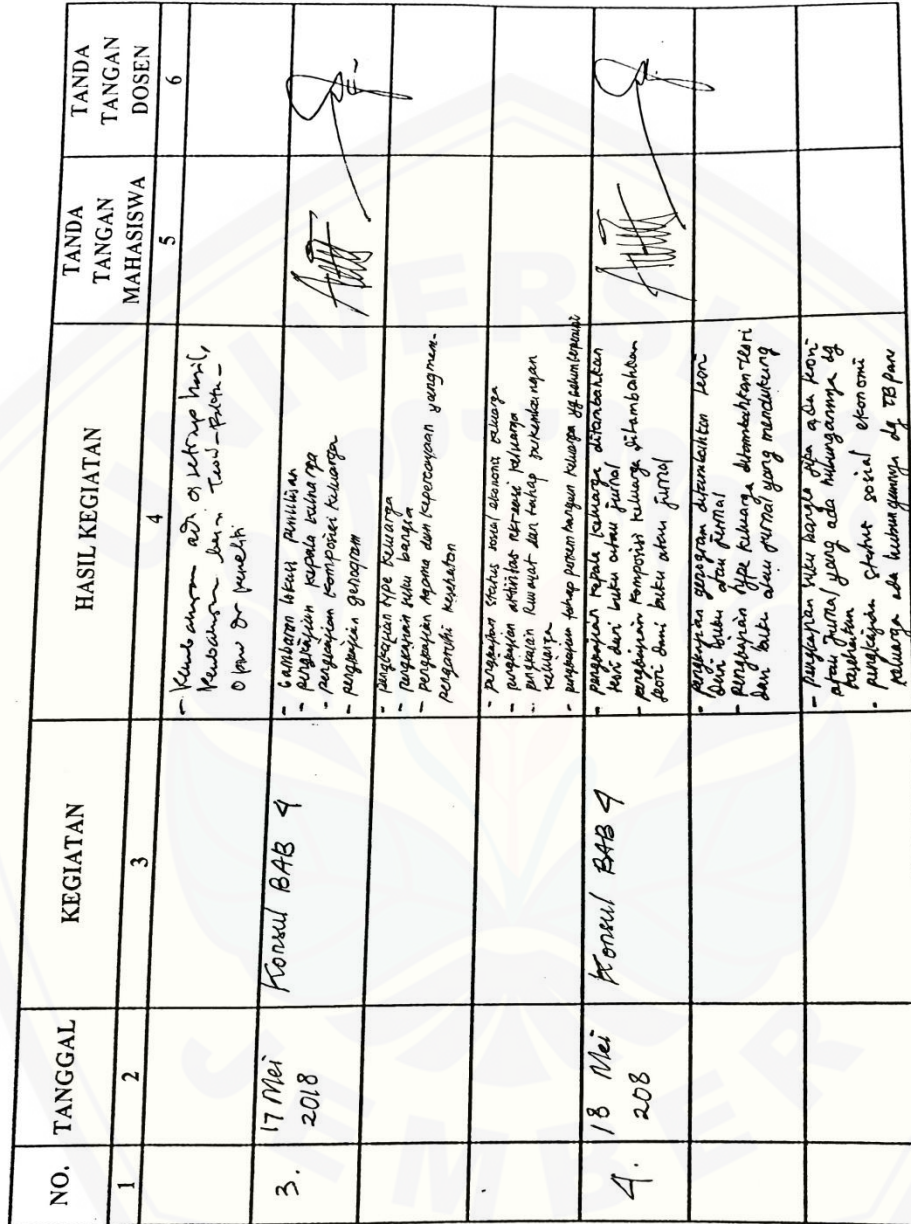 NO.
TANGGAL
KEGIATAN
HASIL KEGIATAN
TANDA
TANGAN
MAHASISWA
TANDA
TANGAN
DOSEN
1
2
3
4
5
6
- ada di setiap hasil,
dari Teori - Fakta -
Opini
3.
17 Mei
2018
Konsul BAB 4
- Gambaran lokasi penelitian
- pengkajian kepala keluarga
- pengkajian komposisi keluarga
- pengkajian genogram
- pengkajian type keluarga
- pengkajian suku bangsa
- pengkajian Agama dan kepercayaan yang mem-
pengaruhi kesehatan
- pengkajian status sosial ekonomi keluarga
- pengkajian aktivitas rekreasi keluarga
- pengkajian Riwayat dan tahap perkembangan
keluarga
- pengkajian tahap perkembangan keluarga yg belum terpenuhi
4.
18 Mei
208
Konsul BAB 4
- pengkajian kepala keluarga ditambahkan
teori dari buku atau jurnal
- pengkajian komposisi keluarga ditambahkan
teori dari buku atau jurnal
- pengkajian genogram ditambahkan teori
dari buku atau jurnal
- pengkajian type keluarga ditambahkan teori
dari buku atau jurnal yang mendukung
- pengkajian suku bangsa jika ada teori
atau jurnal yang ada hubungannya dg
kesehatan
- pengkajian status sosial ekonomi
keluarga ada hubungannya dg TB Paru
UNIVERSITAS
JEMBER